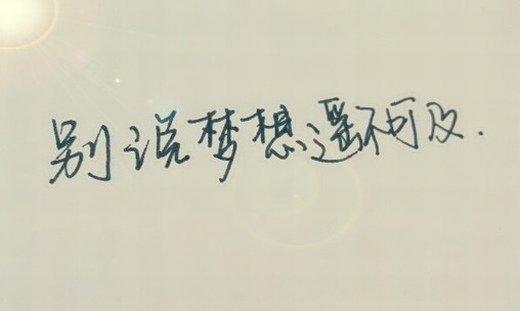 别说梦想遥不可及.